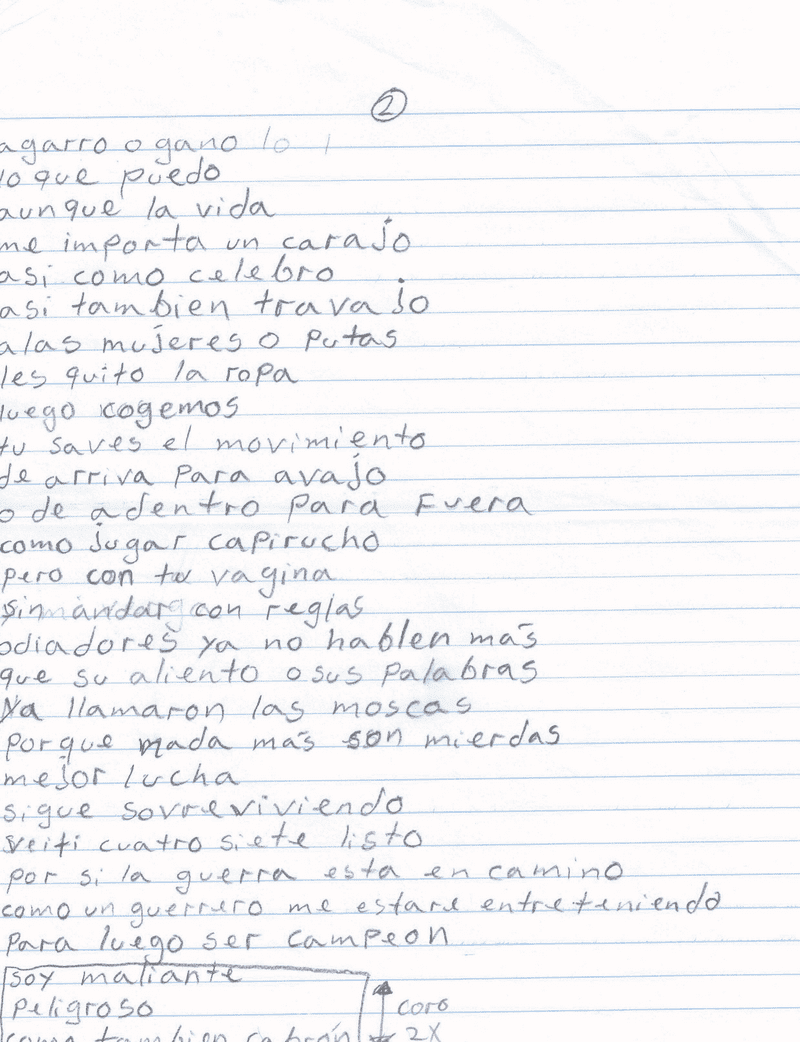 2
agarro o gano lo
lo que puedo
aunque la vida
me importa un carajo
asi como celebro
asi tambien travajo
alas mujeres o putas
les quito la ropa
luego cogemos
tu saves el movimiento
de arriva para avajo
o de adentro para Fuera
como jugar capirucho
pero con tu vagina
sin mandar con reglas
odiadores ya no hablen más
que su aliento o sus palabras
ya llamaron las moscas
porque nada más son mierdas
mejor lucha
sigue sovreviviendo
veiti cuatro siete listo
por si la guerra esta en camino
como un guerrero me estare entreteniendo
para luego ser campeon
soy maliante
peligroso
coro
como tambien cabrón
2X